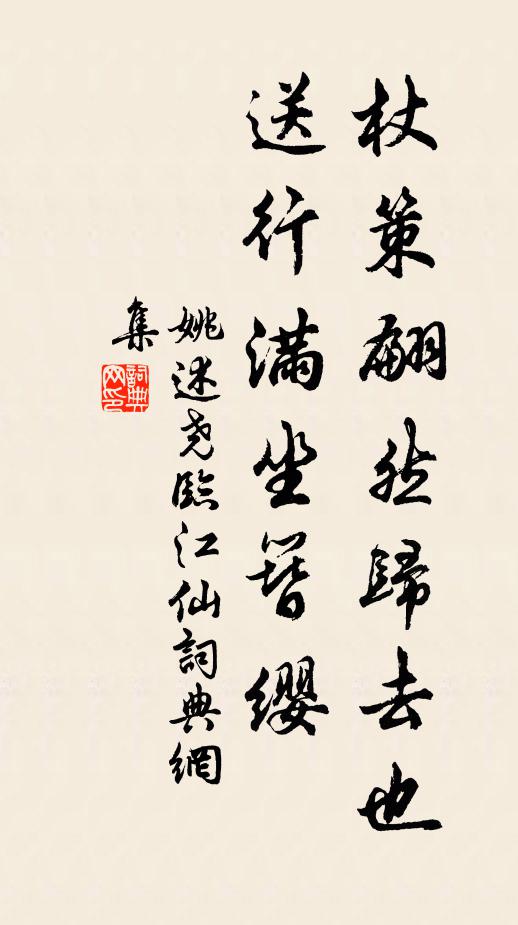 杖策翩然歸去也
送行满坐簪缨
姚述尧臨江仙詞典網
集
詞典
网印